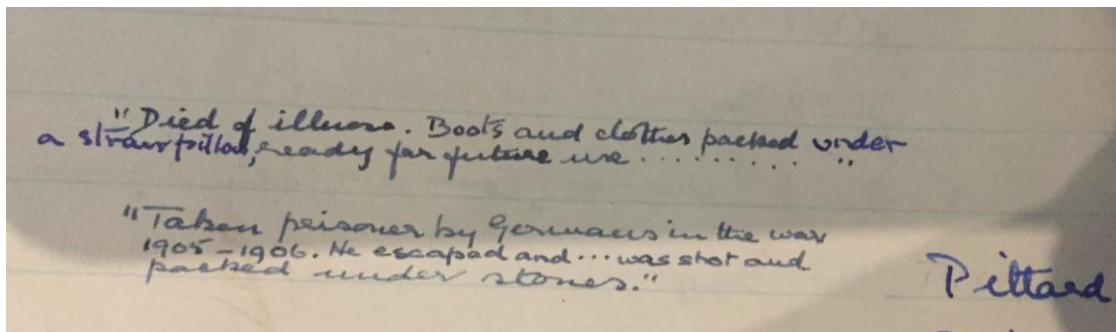 "Died of illness. Boots and clothes packed under
a straw pillow, ready for future use .......... "
"Taken prisoner by Germans in the war
1905-1906. He escaped and ... was shot and
packed under stones."
Pittard